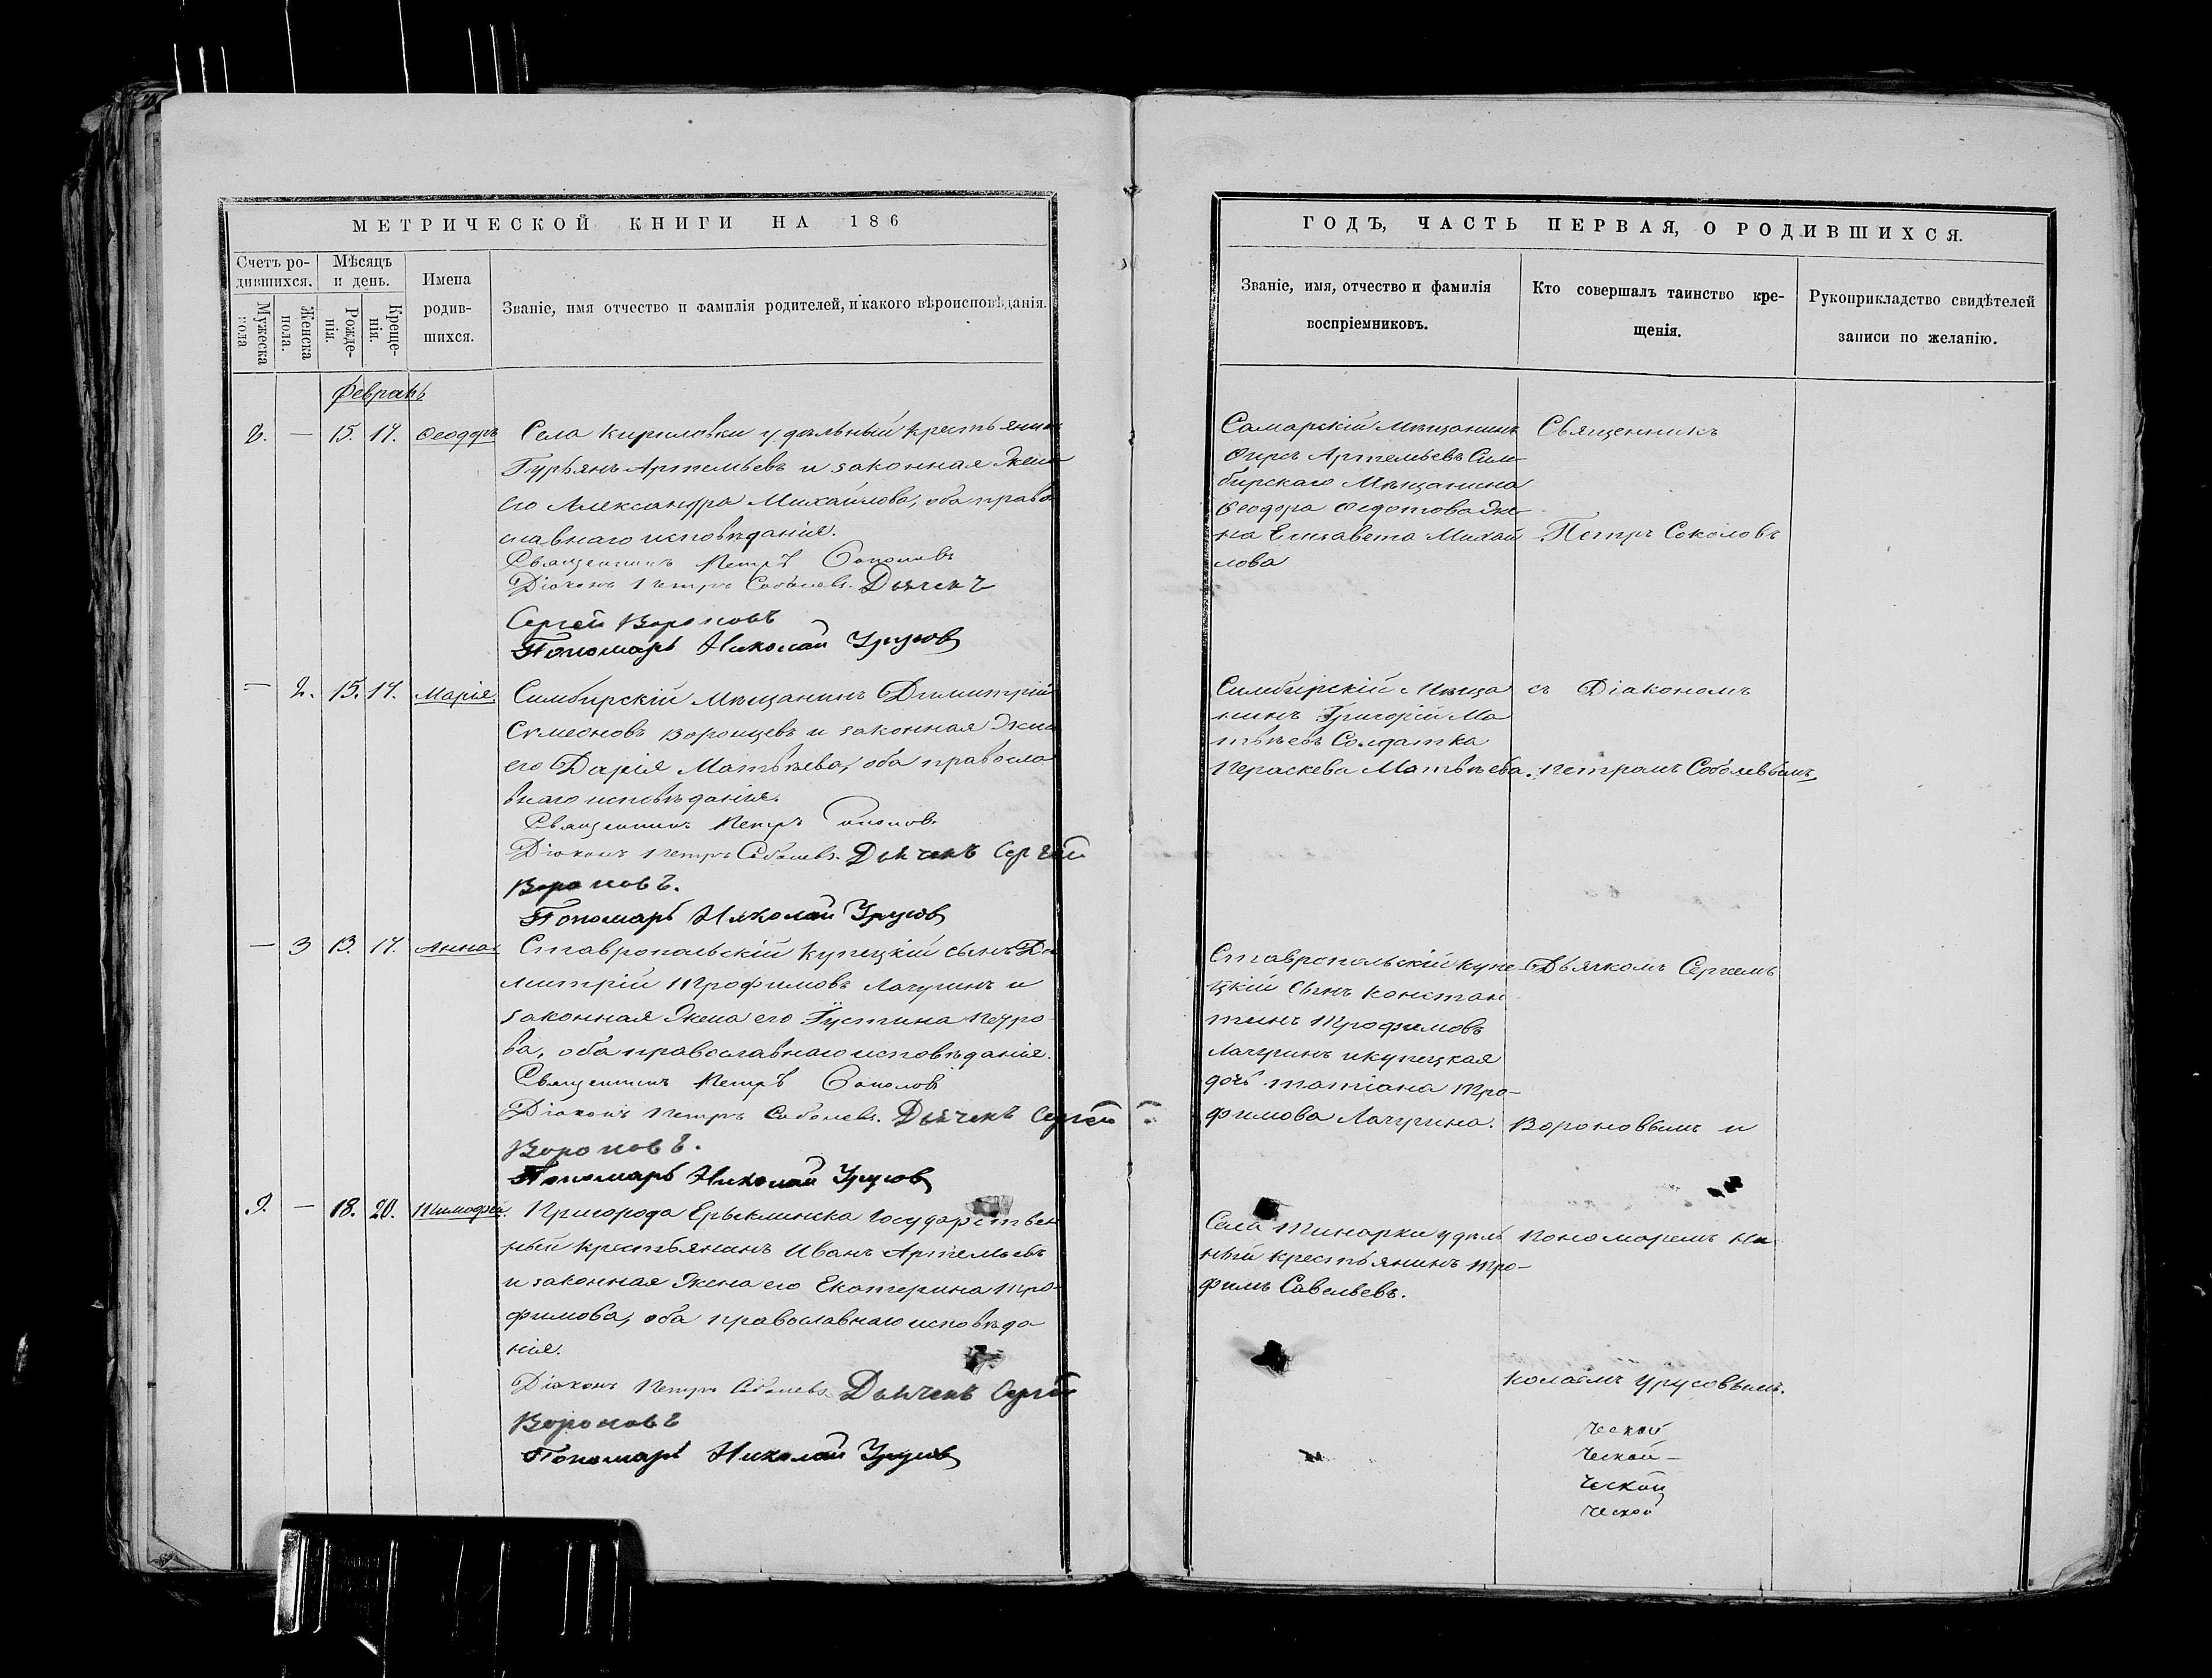 МЕТРИЧЕСКОЙ КНИГИ НА 186
Счетъ ро-
дившихся.
Мѣсяцъ
и день.
Имена
родив-
шихся.
Званіе, имя отчество и фамилія родителей, и какого вѣроисповѣданія.
Мужеска
пола
Женска
пола.
Рожде-
нія.
Креще-
нія.
Февраль
2. — 15. 17. Ѳеодоръ Села Кириловки удѣльный крестьянинъ
Гурьянъ Артемьевъ и законная жена
его Александра Михайлова, оба право
славнаго исповѣданія.
Священникъ Петръ Соколовъ
Діаконъ Петръ Соболевъ. Дьячекъ
Сергей Вороновъ
Пономарь Николай Урусов
— 2. 15. 17. Марія Симбирскій Мѣщанинъ Димитрій
Сѵмеоновъ Воронцевъ и законная жена
его Дарія Матвѣева, оба правосла
внаго исповѣданія.
Священникъ Петръ Соколов
Діаконъ Петръ Соболевъ. Дьячекъ Сергей
Вороновъ.
Пономарь Николай Урусов
— 3 13. 17. Анна Ставропольскій купецкій сынъ Ди
митрій Трофимовъ Лачуринъ и
законная жена его Іустина Петро
ва, оба православнаго исповѣданія.
Священникъ Петръ Соколов
Діаконъ Петръ Соболевъ. Дьячекъ Сергей
Вороновъ.
Пономарь Николай Урусов
3. — 18. 20. Тимофей. Пригорода Ерыклинска Государствен
ный крестьянинъ Иванъ Артемьевъ
и законная жена его Екатерина Тро-
фимова, оба православнаго исповѣда-
нія.
Діаконъ Петръ Соболевъ Дьячекъ Сергей
Вороновъ
Пономарь Николай Урусов
ГОДЪ, ЧАСТЬ ПЕРВАЯ, О РОДИВШИХСЯ.
Званіе, имя, отчество и фамилія
воспріемниковъ.
Кто совершалъ таинство кре-
щенія.
Рукоприкладство свидѣтелей
записи по желанію.
Самарскій Мѣщанинъ Священникъ
Фирсъ Артемьевъ Сим-
бирскаго Мѣщанина
Ѳеодора Ѳедотова же
на Елизавета Михай Петръ Соколовъ
лова
Симбирскій Мѣща съ Діакономъ
нинъ Григорій Ма
твѣевъ Солдатка
Параскева Матвѣева. Петромъ Соболевымъ,
Ставропольскій купе Дьячкомъ Сергеемъ
цкій сынъ Констан
тинъ Трофимовъ
Лачуринъ и купецкая
дочь Татіана Тро-
фимова Лачурина. Вороновымъ и
Села Тинарки удѣль Пономаремъ Ни
ный крестьянинъ Тро-
фимъ Савельевъ.
колаемъ Урусовымъ.
ческой
ческой
ческой
ческой